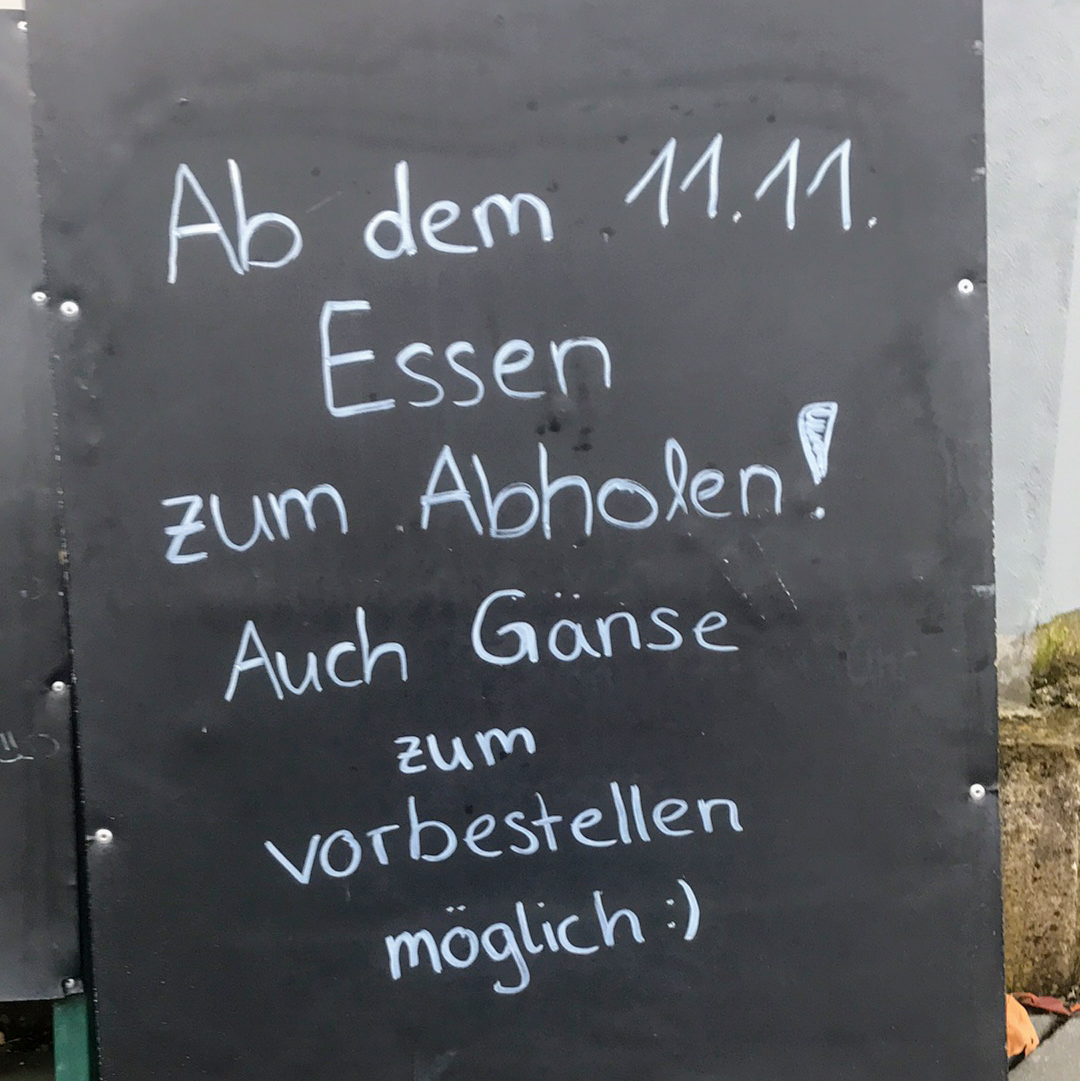 Ab dem 11.11.
Essen
zum Abholen!
Auch Gänse
zum
vorbestellen
möglich :)